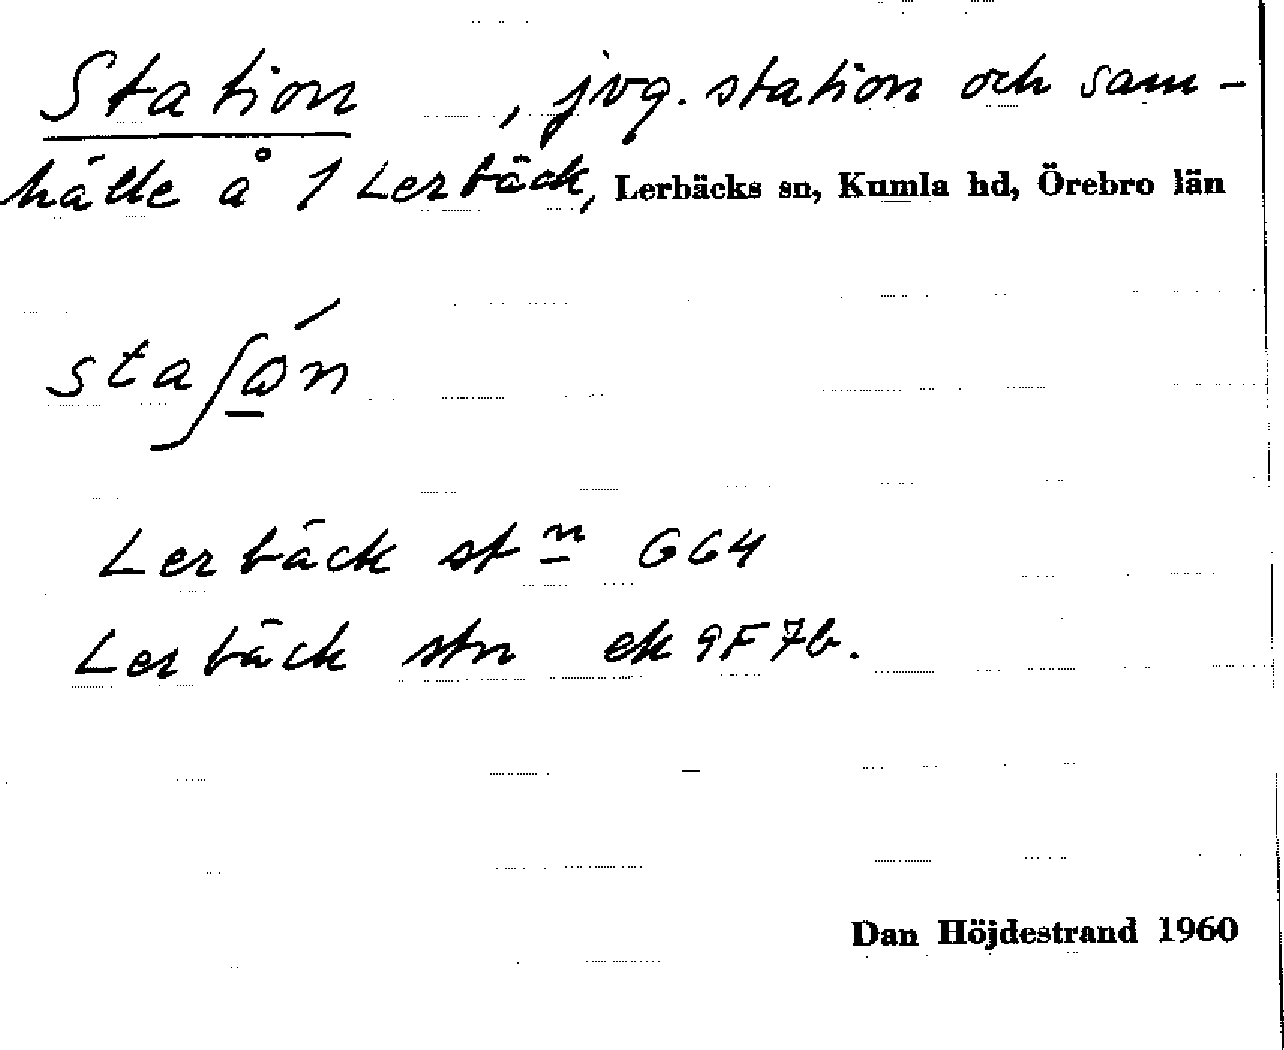 Station, jvg. station och sam-
hälle å 1 Lerbäck, Lerbäcks sn, Kumla hd, Örebro län
staʃɷ̱́n
Lerbäck stn GG4
Lerbäck stn ek 9F7b.
Dan Höjdestrand 1960